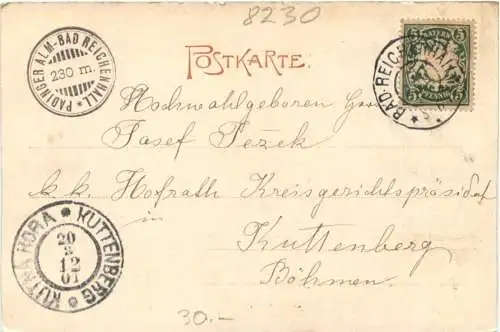 8230
PADINGER ALM-BAD REICHENHALL
230 m.
POSTKARTE.
BAYERN
5 5
PFENNIG
BAD-REICHENHALL
Hochwohlgeboren Herrn
Josef Ježek
k. k. Hofrath Kreisgerichtspräsident
in
Kuttenberg
Böhmen.
KUTNÁ HORA * KUTTENBERG
20
12
01
30.-